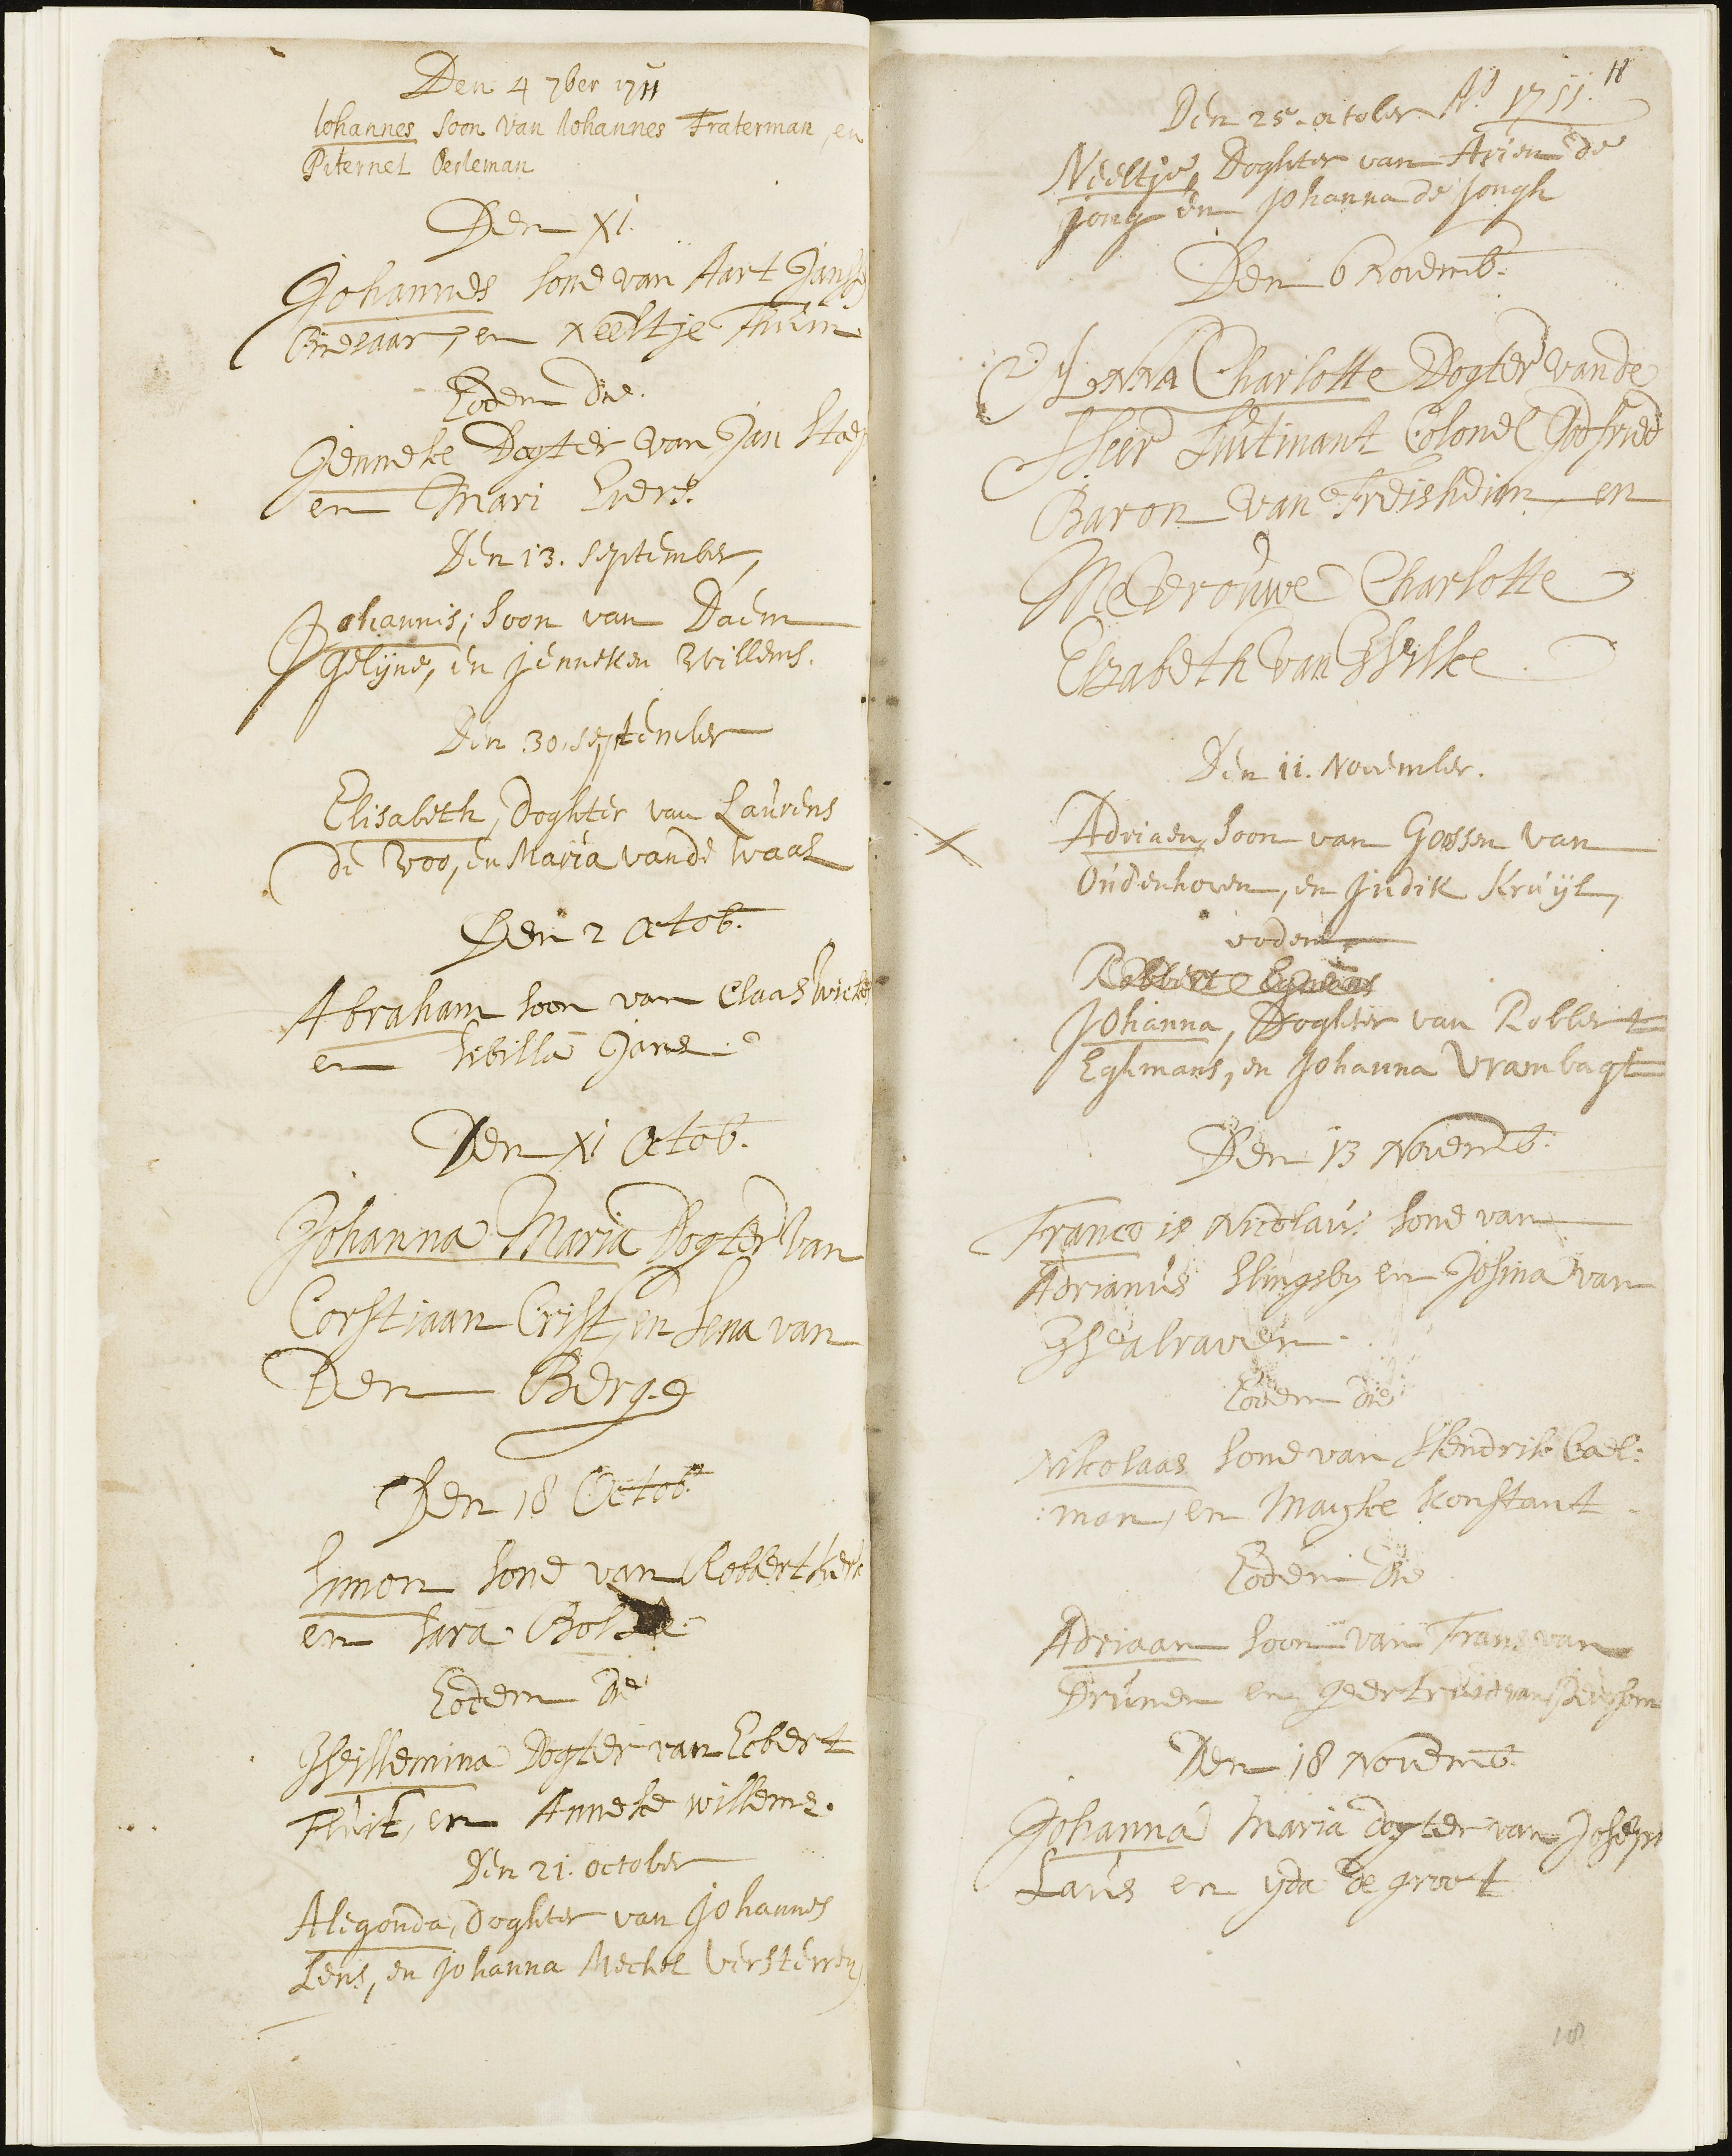 Den 4 7ber 1711
Johannes soon van Johannes Fraterman, en
Piternel Oerleman
Den XI.
Johannes sone van Aart Jansse
en Neeltje
Eodem die.
Jenneke Dogter van Jan
en Mari Evers.
Den 13. september,
Johannis, soon van Daem
Gelijne, en Jenneken Willems.
Den 30. september
Elisabeth, Doghter van Laurens
de Voo, en Maria vande Waal
Den 2 Octob.
Abraham soon van Claas
en Sibilla Jans.
Den XI Octob.
Johanna Maria Dogter van
Corstiaan Crist, en Lena van
Den Berg.
Den 18 Octob.
Simon sone van Robbert
en Sara
Eodem die
Willemina Dogter van Ecbert
Fluit, en Anneke willems.
Den 21. october
Alegonda, Doghter van Johannes
Lens, en Johanna Mechel Versterren
18
Den 25. october Ao. 1711.
Neeltje, Doghter van Arien de
jong en Johanna de Jongh
Den 6 Novemb.
Anna Charlotte Dogter vande
Heer Luitinant Colonel Godfried
Baron van en
Mevrouwe Charlotte
Elzabeth van Wilke.
Den 11. November.
Adriaen, soon van Gossen van
Oudenhoven, en Judik Kruijt,
eodem
Robbert
Johanna, Doghter van Robbert
Eghmans, en Johanna Vrambagt
Den 13 Novemb.
Franco is Nicolaus sone van
Adrianus Slingsby en Josina van
Walraven.
Eodem die
Nikolaas sone van Hendrik Cael:
:man, en Mayke Konstant
Eodem die
Adriaan soon van Frans van
Drunen en geertruid van
Den 18 Novemb.
Johanna Maria dogter van Joseph
Laus en yda de groot
18